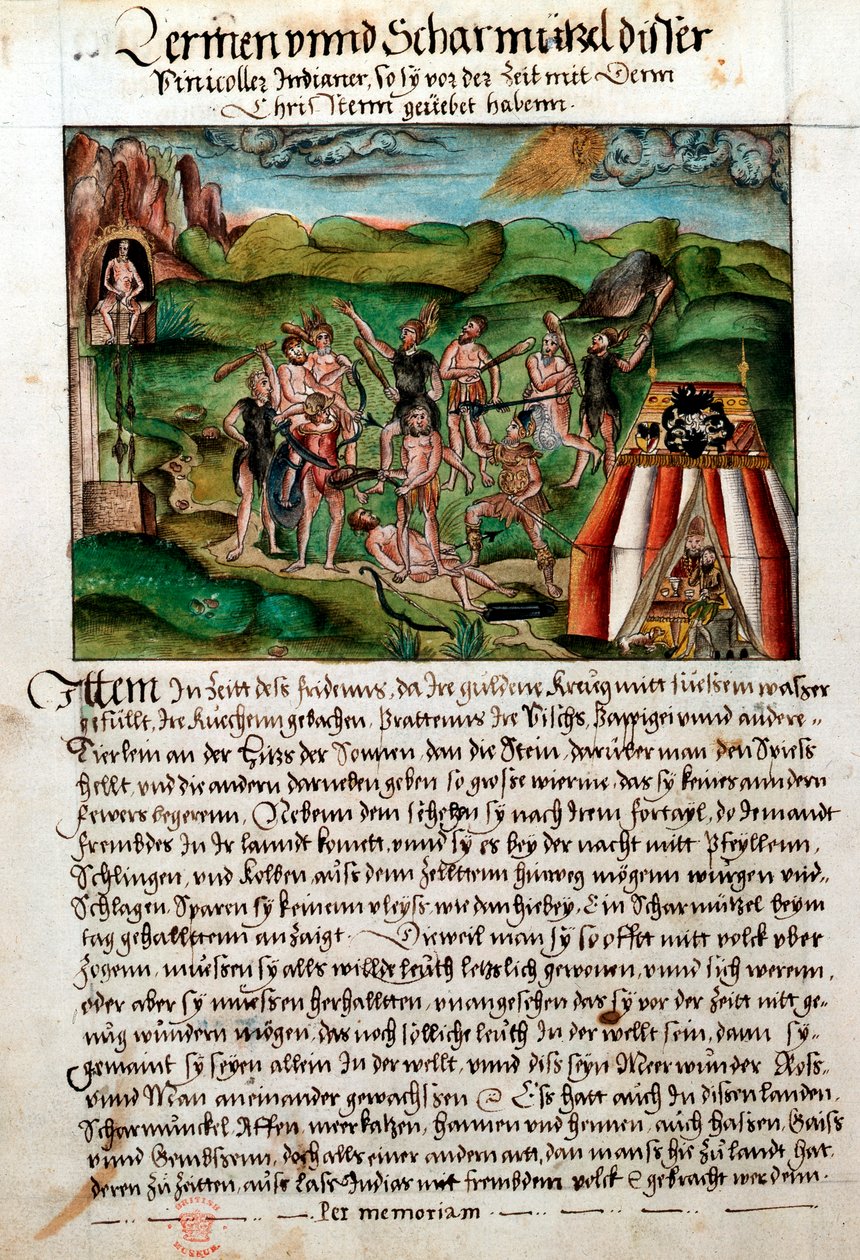 Lermen vnnd Scharmützel disser
Vinicoller Indianer, so sy vor der Zeit mit Denn
Christenn geüebet habenn.
Ittem In Zeitt dess fridenns, da Ire guldene Kreug mitt suessem wasser
gefüllt, Ire Kuechenn gebachen, Prattenns Ire Vischs, Pappigei vnnd andere
Tierlein an der Hitzs der Sonnen, dan die Stein, darüber man den Spiess
hellt, vnd die andern darneben geben so grosse wierme, das sy keines anndern
fewers begerenn, Nebenn dem sehehen sy nach Irem fortayl, do Jemandt
frembdes In Ir lanndt komett, vnnd sy es bey der nacht mitt Pfeyllenn,
Schlingen, vnd Kolben, auss denn Zellttenn hinweg mögenn würgen vnd
Schlagen, Sparen sy keinenn vleyss, wie dan hiebey, Ein Scharmützel beym
tag gehallttenn anzaigt. Dieweil man sy so offtt mitt volck vber
zogenn, muessen sy alls willde leüth letzlich gewonen, vnnd sich werenn,
oder aber sy muessen herhalltten, vnangesehen das sy vor der Zeitt nitt ge
nug wundern mögen, das noch sölliche leuth In der wellt sein, dann sy
gemaint sy seyen allein In der wellt, vnnd diss seyn Meer wunder Ross
vnnd Man aneinander gewachssen Ess hatt auch In dissen landen,
Scharmunckel, Affen, meerkatzen, hannen vnd hennen, auch hassen, Gaiss
vnnd Gembssenn, doch alls einer andern artt, dan manss hie zu landt hat,
deren zu Zeitten, auss Lass Indias mit frembdem volck gebracht werdenn.
Per memoriam
BRITISH
MUSEUM